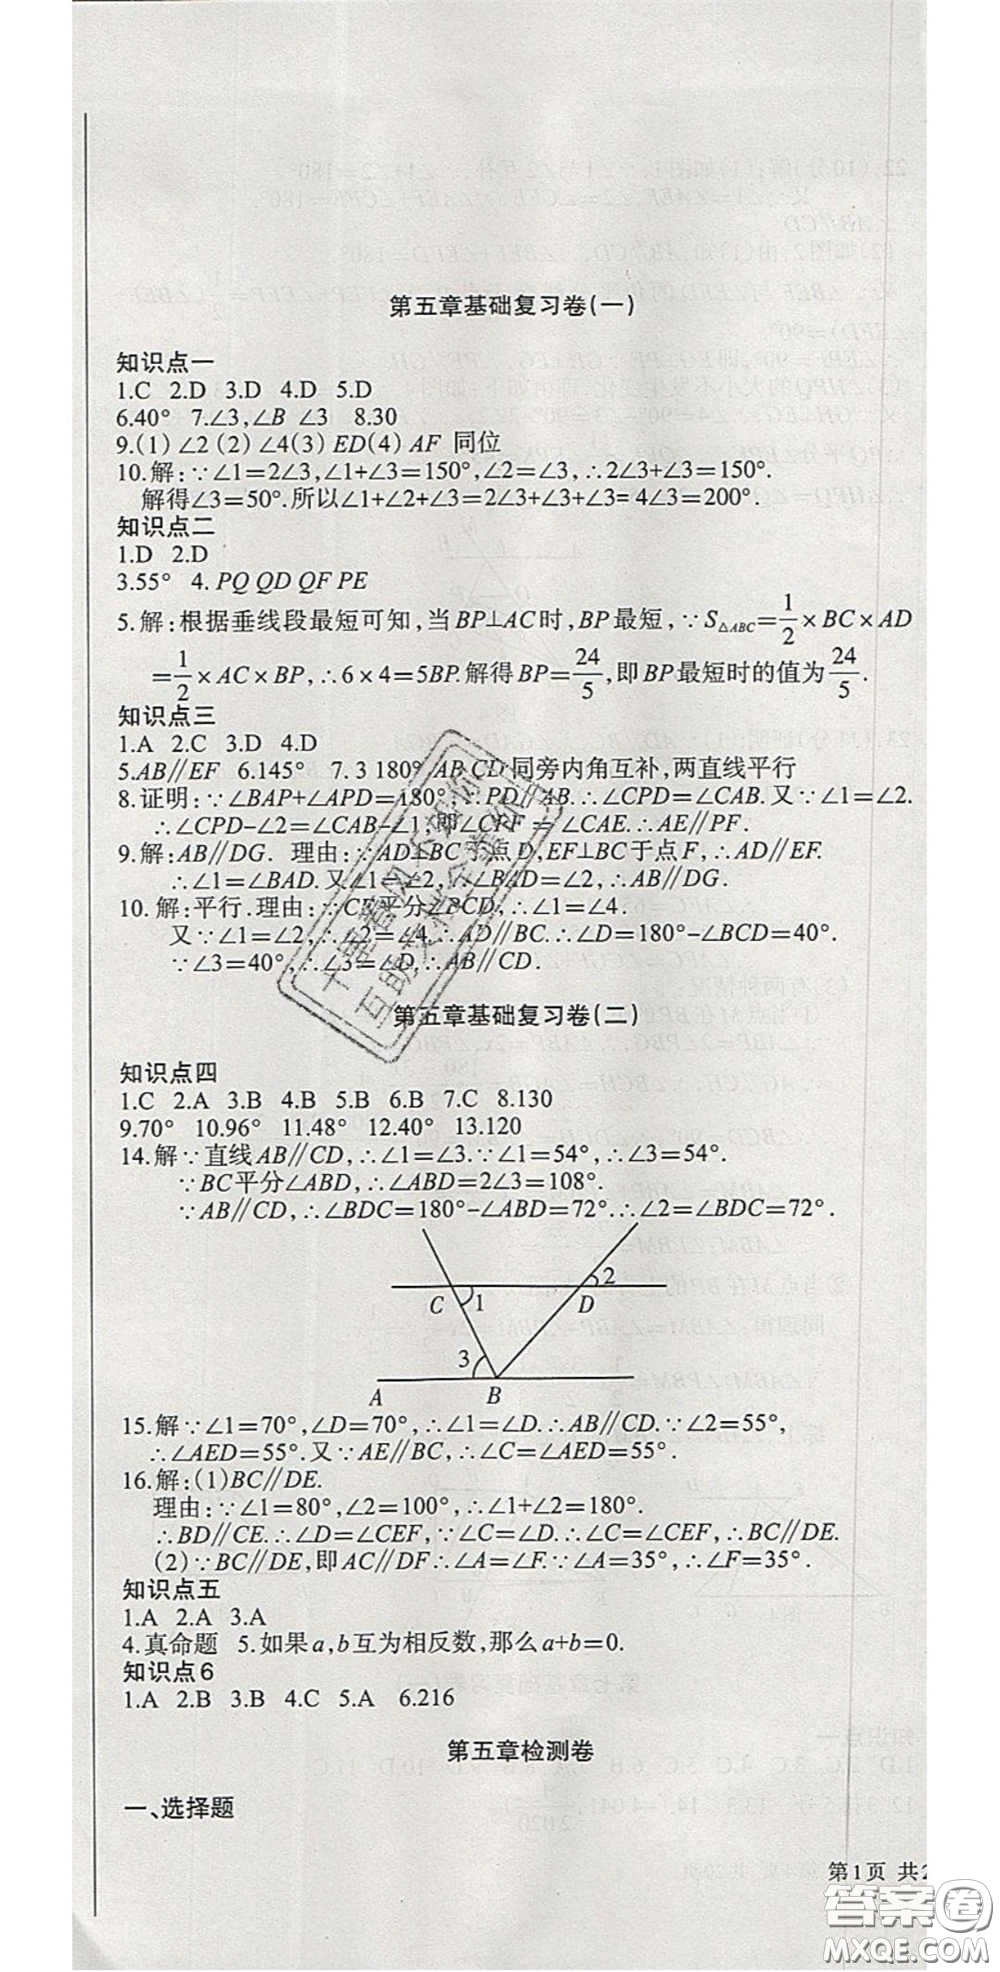 第五章基础复习卷(一)
知识点一
1.C 2.D 3.D 4.D 5.D
6.40° 7.∠3,∠B ∠3 8.30
9.(1) ∠2 (2) ∠4(3) ED(4) AF 同位
10.解:∵∠1=2∠3,∠1+∠3=150°,∠2=∠3,∴2∠3+∠3=150°.
解得∠3=50°.所以∠1+∠2+∠3=2∠3+∠3+∠3=4∠3=200°.
知识点二
1.D 2.D
3.55° 4. PQ QD QF PE
5.解:根据垂线段最短可知,当BP⊥AC时,BP最短,∵S△ABC=1/2×BC×AD
=1/2×AC×BP,∴6×4=5BP.解得BP=24/5,即BP最短时的值为24/5.
知识点三
1.A 2.C 3.D 4.D
5.AB∥EF 6.145° 7. 3 180° AB CD 同旁内角互补,两直线平行
8.证明:∵∠BAP+∠APD=180°,∴PD=AB.∴∠CPD=∠CAB.又∵∠1=∠2.
∴∠CPD-∠2=∠CAB-∠1,即∠CPF=∠CAE.∴AE∥PF.
9.解:AB∥DG. 理由:∵AD⊥BC于点D,EF⊥BC于点F,∴AD∥EF.
∴∠1=∠BAD.又∠1=∠2,∴∠BAD=∠2,∴AB∥DG.
10.解:平行.理由:∵CE平分∠BCD,∴∠1=∠4.
又∵∠1=∠2,∴∠2=∠4.∴AD∥BC.∴∠D=180°-∠BCD=40°.
∵∠3=40°,∴∠3=∠D.∴AB∥CD.
第五章基础复习卷(二)
知识点四
1.C 2.A 3.B 4.B 5.B 6.B 7.C 8.130
9.70° 10.96° 11.48° 12.40° 13.120
14.解∵直线AB∥CD,∴∠1=∠3.∵∠1=54°,∴∠3=54°.
∵BC平分∠ABD,∴∠ABD=2∠3=108°.
∵AB∥CD,∴∠BDC=180°-∠ABD=72°.∴∠2=∠BDC=72°.
2
C 1 D
3
A B
15.解∵∠1=70°,∠D=70°,∴∠1=∠D.∴AB∥CD.∵∠2=55°,
∴∠AED=55°.又∵AE∥BC,∴∠C=∠AED=55°.
16.解:(1)BC∥DE.
理由:∵∠1=80°,∠2=100°,∴∠1+∠2=180°.
∴BD∥CE.∴∠D=∠CEF,∵∠C=∠D.∴∠C=∠CEF,∴BC∥DE.
(2)∵BC∥DE,即AC∥DF∴∠A=∠F.∵∠A=35°,∴∠F=35°.
知识点五
1.A 2.A 3.A
4.真命题 5.如果a,b互为相反数,那么a+b=0.
知识点6
1.A 2.B 3.B 4.C 5.A 6.216
第五章检测卷
一、选择题
第1页 共2
答案圈
MXQE.COM